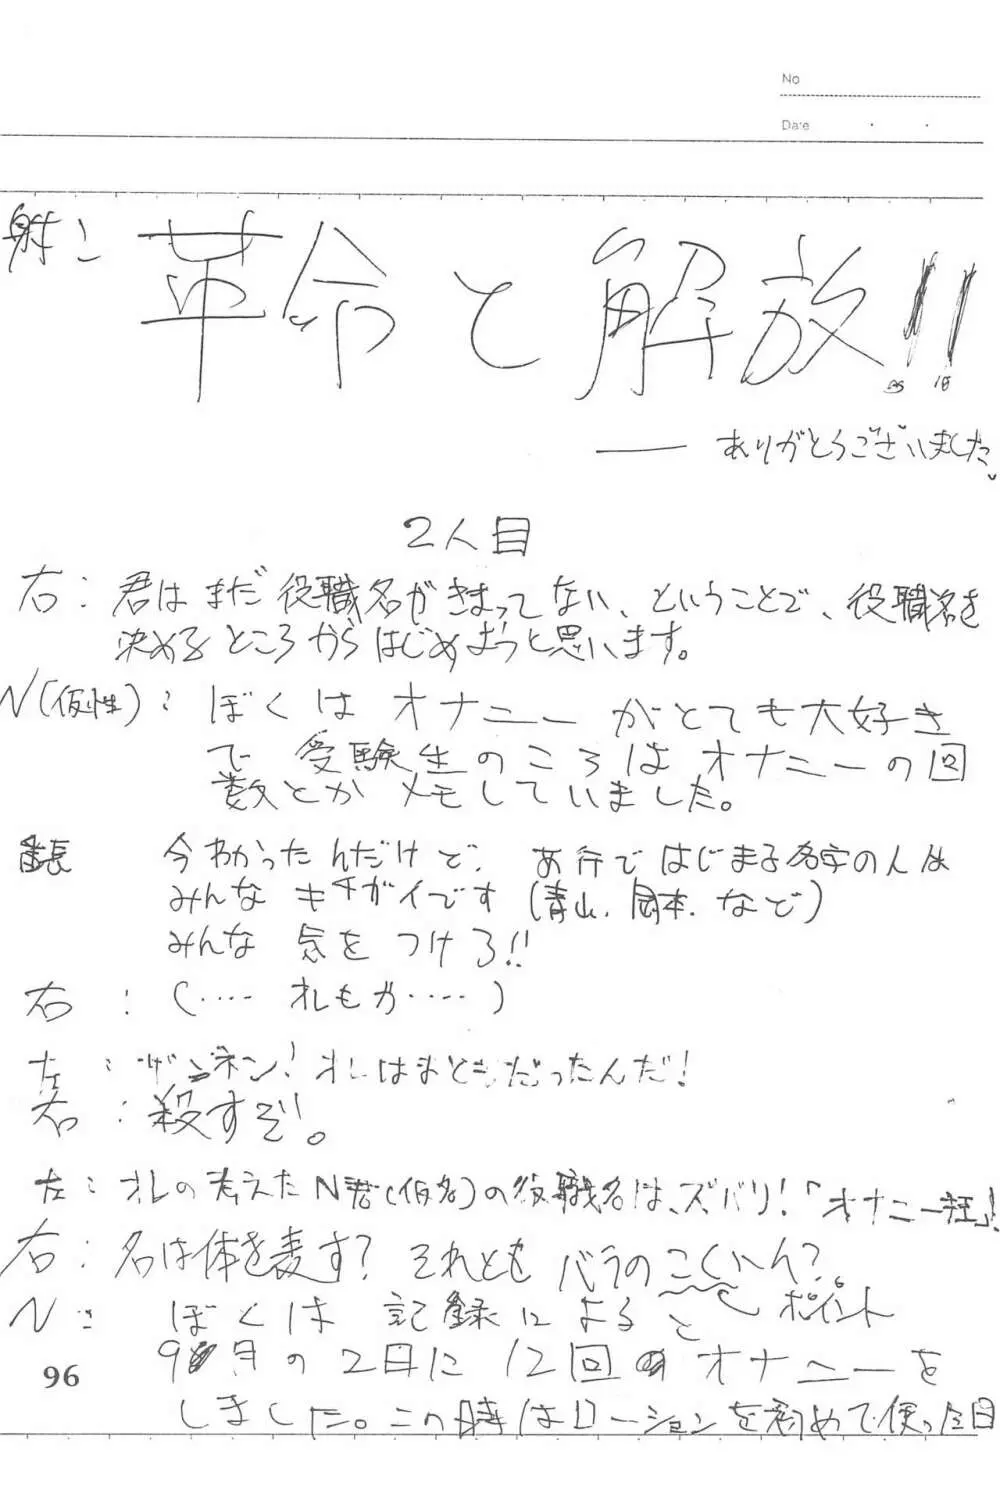 No
Date
射: 革命と解放!!
―― ありがとうございました。
2人目
右: 君はまだ役職名がきまってない、ということで、役職名を
決めるところからはじめようと思います。
N(仮性): ぼくは オナニー がとても大好き
で 受験生のころは オナニーの回
数とか メモしていました。
番長 今わかったんだけど、あ行ではじまる名字の人は
みんな キチガイです (青山、岡本、など)
みんな 気を つけろ!!
右: (‥‥ オレもか‥‥)
左: ザンネン! オレはまともだったんだ!
右: 殺すぞ!。
左: オレの考えたN君(仮名)の役職名は、ズバリ!「オナニー狂」!
右: 名は体を表す? それとも バラのこくいへん?
ポイント
N: ぼくは 記録によると
9月の2日に 12回 オナニーを
しました。この時はローションを初めて使った日
96